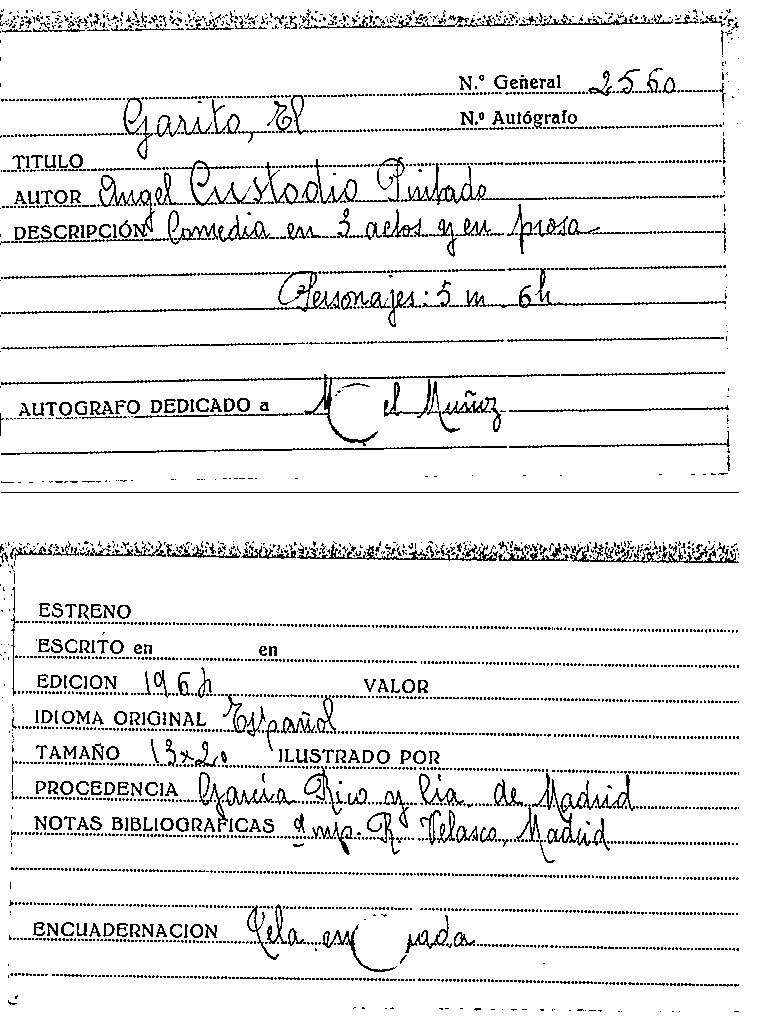 N.º General 2560
Garito, El
N.º Autógrafo
TITULO
AUTOR Angel Custodio Pintado
DESCRIPCIÓN Comedia en 3 actos y en prosa
Personajes: 5 m. 6h
AUTOGRAFO DEDICADO a M el Muñoz
ESTRENO
ESCRITO en en
EDICION VALOR
IDIOMA ORIGINAL Español
TAMAÑO 13x20 ILUSTRADO POR
PROCEDENCIA García Rico y Cia. de Madrid
NOTAS BIBLIOGRAFICAS Imp. Rº Velasco, Madrid
ENCUADERNACION Tela